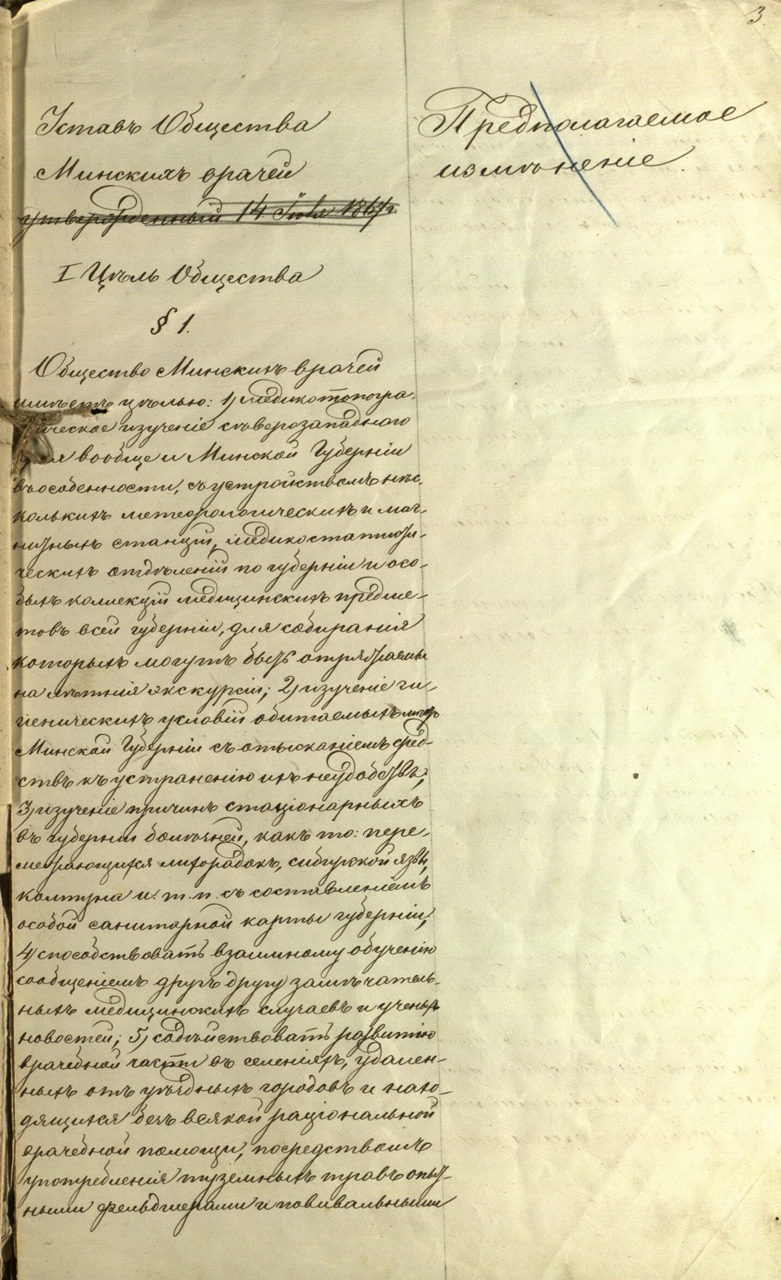 3
Уставъ Общества
Минскихъ врачей
утвержденный 14 Іюля 1867 г
I Цѣль Общества
§ 1.
Общество Минскихъ врачей
имѣетъ цѣлью: 1) медикотопогра-
фическое изученіе сѣверозападнаго
края вообще и Минской Губерніи
въ особенности, съ устройствомъ нѣс-
колькихъ метеорологическихъ и маг-
нитныхъ станцій, медикостатисти-
ческихъ отдѣленій по губерніи и осо-
быхъ коллекцій медицинскихъ предме-
товъ всей губерніи, для собиранія
которыхъ могутъ быть отряжаемы
на лѣтнія экскурсіи; 2) изученіе ги-
гіеническихъ условій обитаемыхъ мѣстъ
Минской Губерніи съ отысканіемъ сред-
ствъ къ устраненію ихъ неудобствъ;
3) изученіе причинъ стаціонарныхъ
въ губерніи болѣзней, какъ то: пере-
межающихся лихорадокъ, сибирской язвы,
колтуна и. т. п. съ составленіемъ
особой санитарной карты губерніи;
4) способствовать взаимному обученію
сообщеніемъ другъ другу замѣчатель-
ныхъ медицинскихъ случаевъ и ученыхъ
новостей; 5) содѣйствовать развитію
врачебной части въ селеніяхъ, удален-
ныхъ отъ уѣздныхъ городовъ и нахо-
дящихся безъ всякой раціональной
врачебной помощи, посредствомъ
употребленія туземныхъ травъ опыт-
ными фельдшерами и повивальными
Предполагаемое
измѣненіе